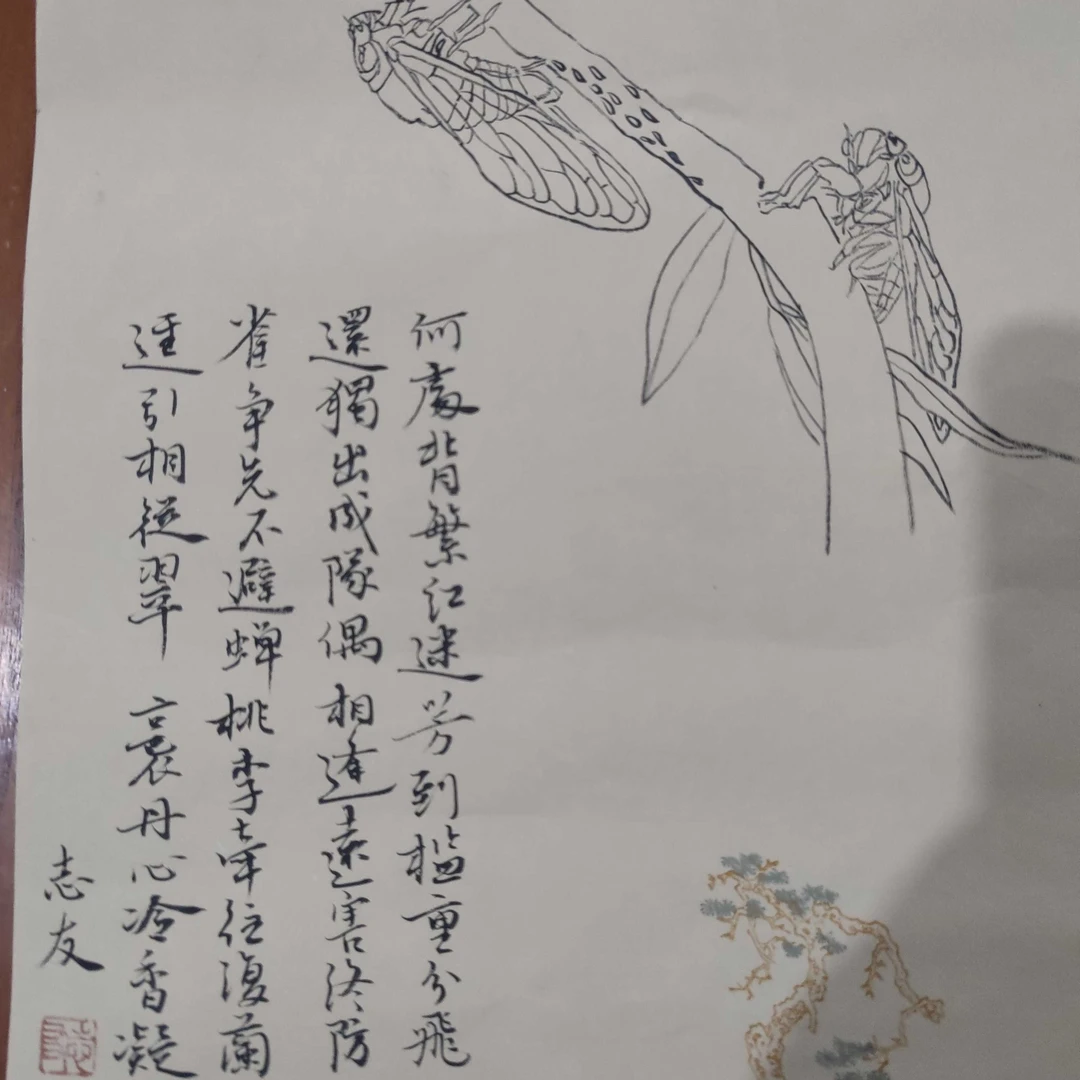 何處背繁红迷芳到檻重分飛
還獨出成隊偶相逢遠害终防
雀争先不避蟬桃李牽往復蘭
逕引相從翠裛丹心冷香凝
志友